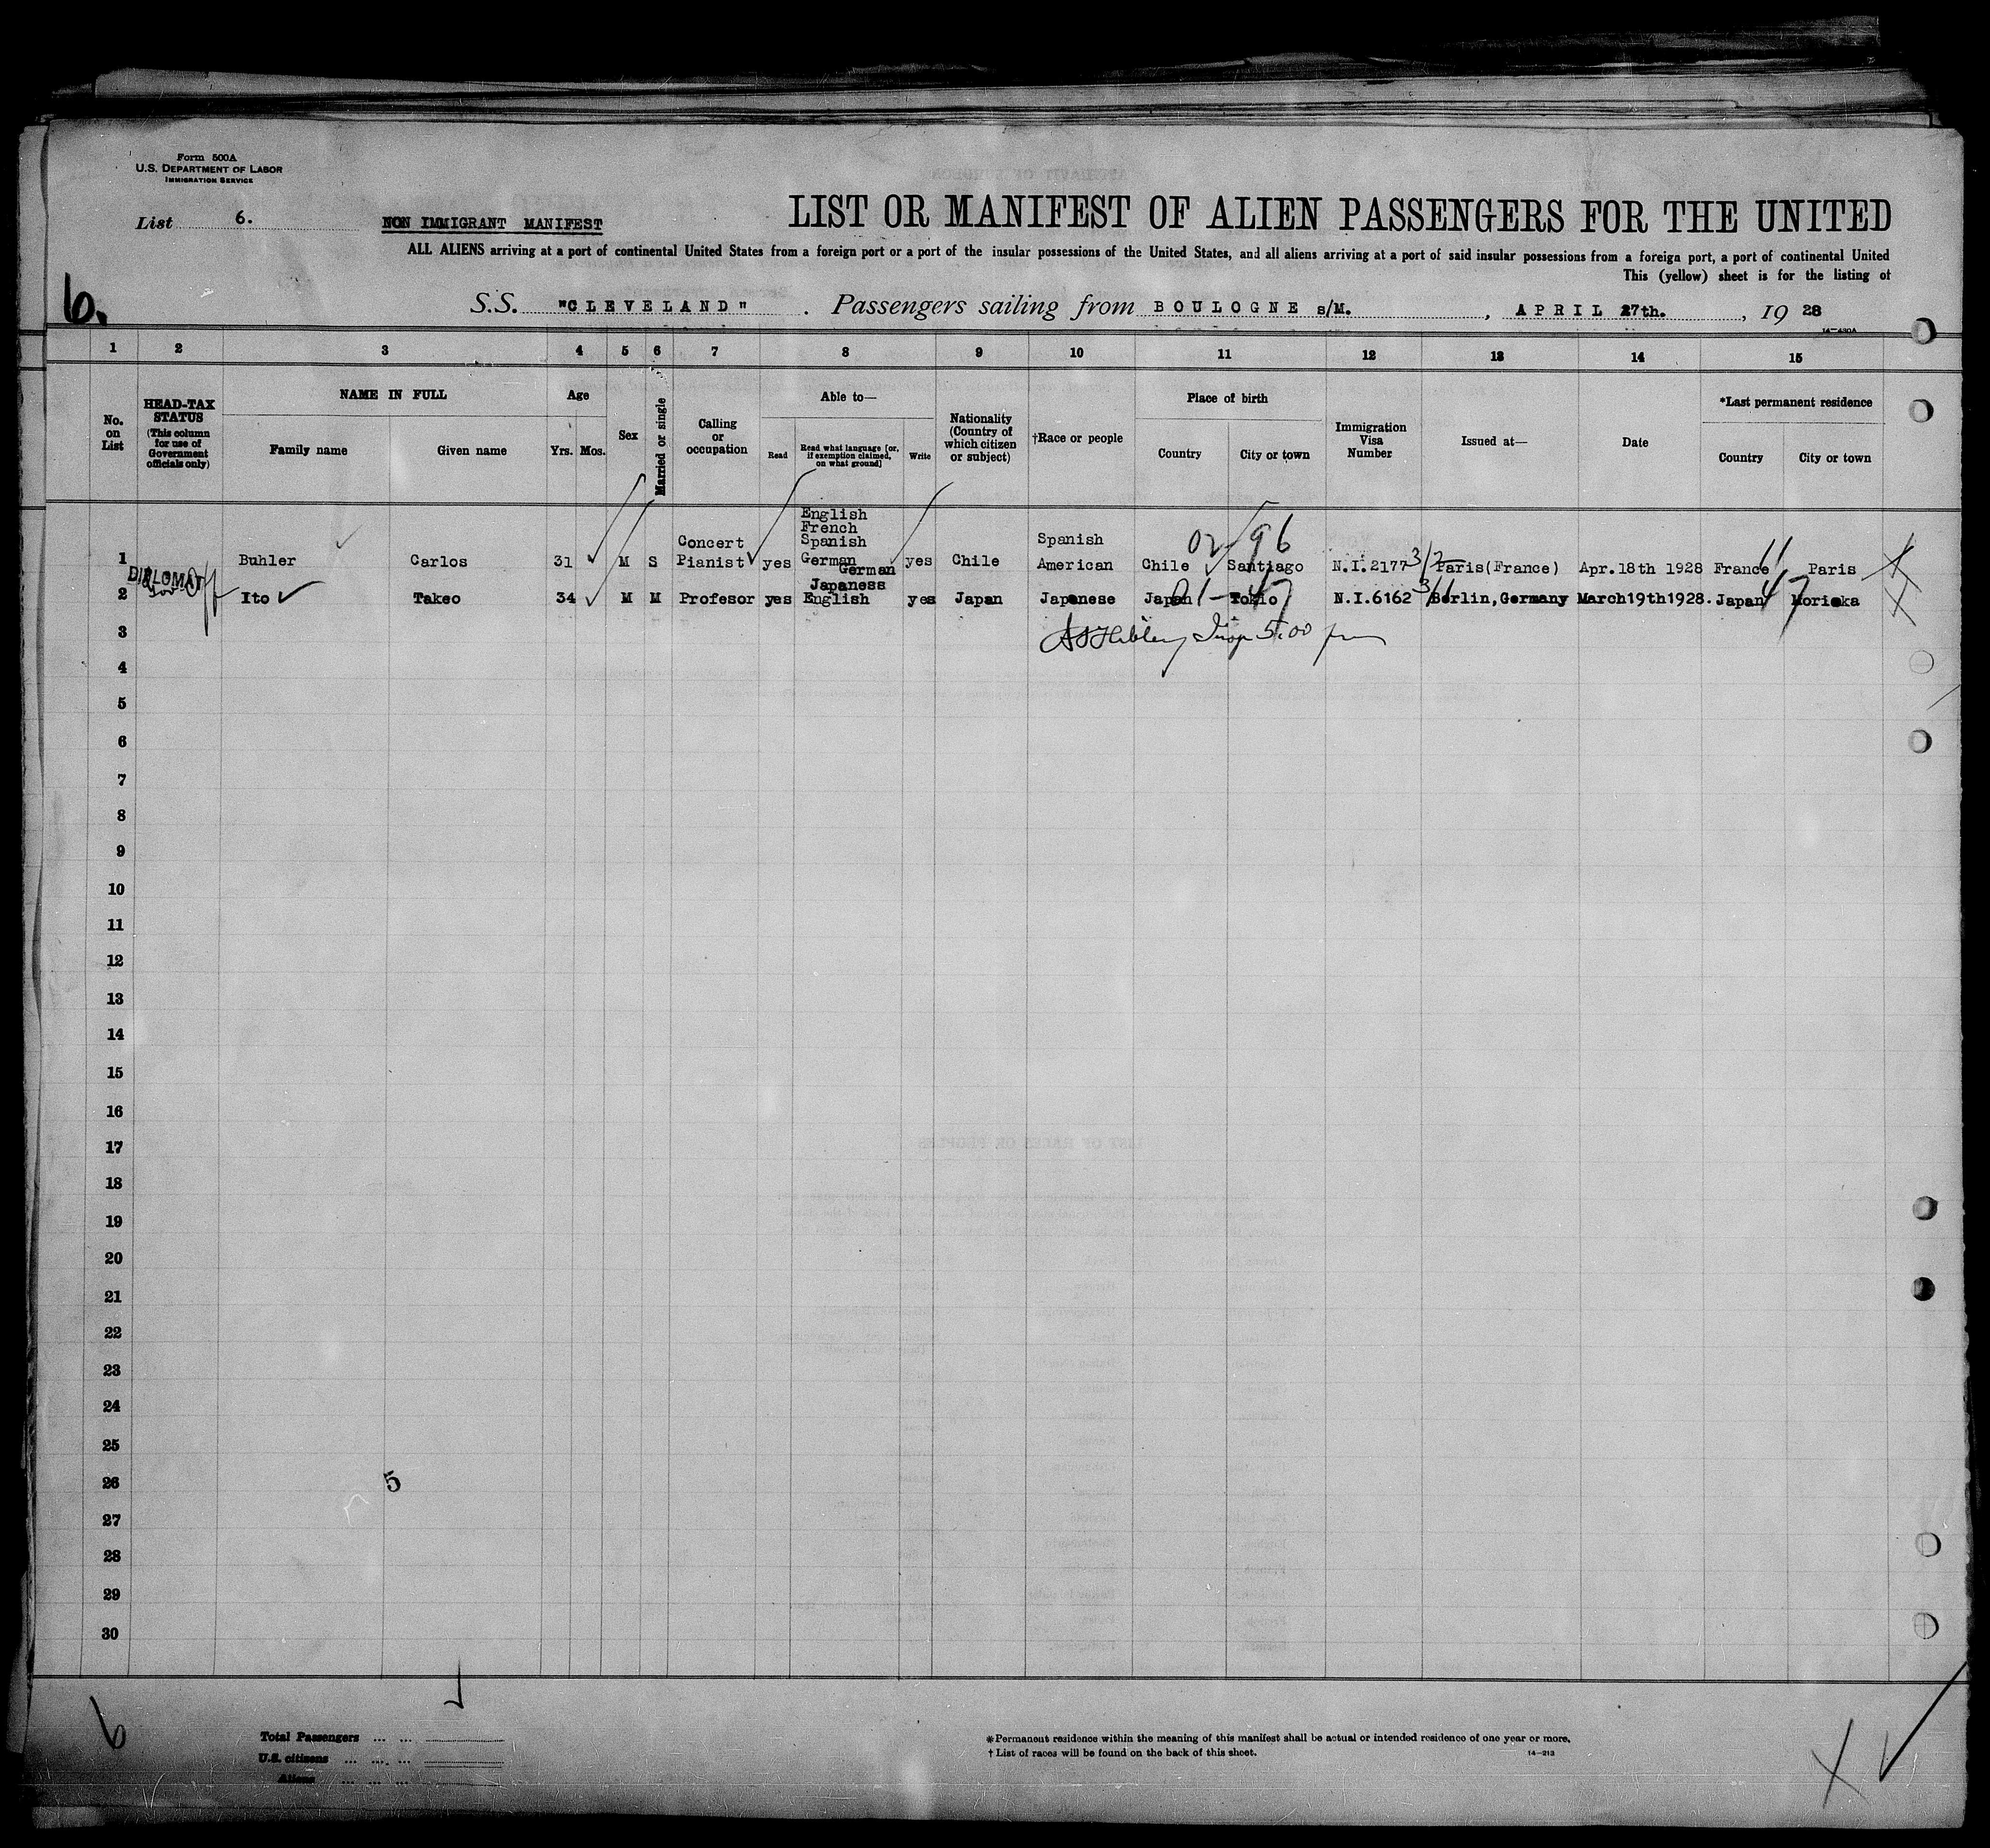 Form 500A
U.S. DEPARTMENT OF LABOR
IMMIGRATION SERVICE
List 6.
NON IMMIGRANT MANIFEST
LIST OR MANIFEST OF ALIEN PASSENGERS FOR THE UNITED
ALL ALIENS arriving at a port of continental United States from a foreign port or a port of the insular possessions of the United States, and all aliens arriving at a port of said insular possessions from a foreign port, a port of continental United
This (yellow) sheet is for the listing of
6.
S.S. "CLEVELAND". Passengers sailing from BOULOGNE s/M., APRIL 27th., 19 28
14-430A
1 2 3 4 5 6 7 8 9 10 11 12 13 14 15
No. on List
HEAD-TAX STATUS
(This column for use of Government officials only)
NAME IN FULL
Family name Given name
Age
Yrs. Mos.
Sex
Married or single
Calling or occupation
Able to—
Read
Read what language [or, if exemption claimed, on what ground]
Write
Nationality (Country of which citizen or subject)
†Race or people
Place of birth
Country City or town
Immigration Visa Number
Issued at—
Date
*Last permanent residence
Country City or town
02-96
1 Buhler Carlos 31 M S Concert Pianist yes English French Spanish German yes Chile Spanish American Chile Santiago N.I.2177 3/2 Paris(France) Apr.18th 1928 France 11 Paris
DIPLOMAT
2 Ito Takeo 34 M M Profesor yes German Japaness English yes Japan Japanese Japan Tokio 01-47 N.I.6162 3/1 Berlin,Germany March19th1928. Japan 47 Morioka
Insp 5.00 pm
3
4
5
6
7
8
9
10
11
12
13
14
15
16
17
18
19
20
21
22
23
24
25
26
5
27
28
29
30
6
Total Passengers ... ...
U.S. citizens ... ... ...
Aliens ... ... ...
*Permanent residence within the meaning of this manifest shall be actual or intended residence of one year or more.
†List of races will be found on the back of this sheet.
14-213